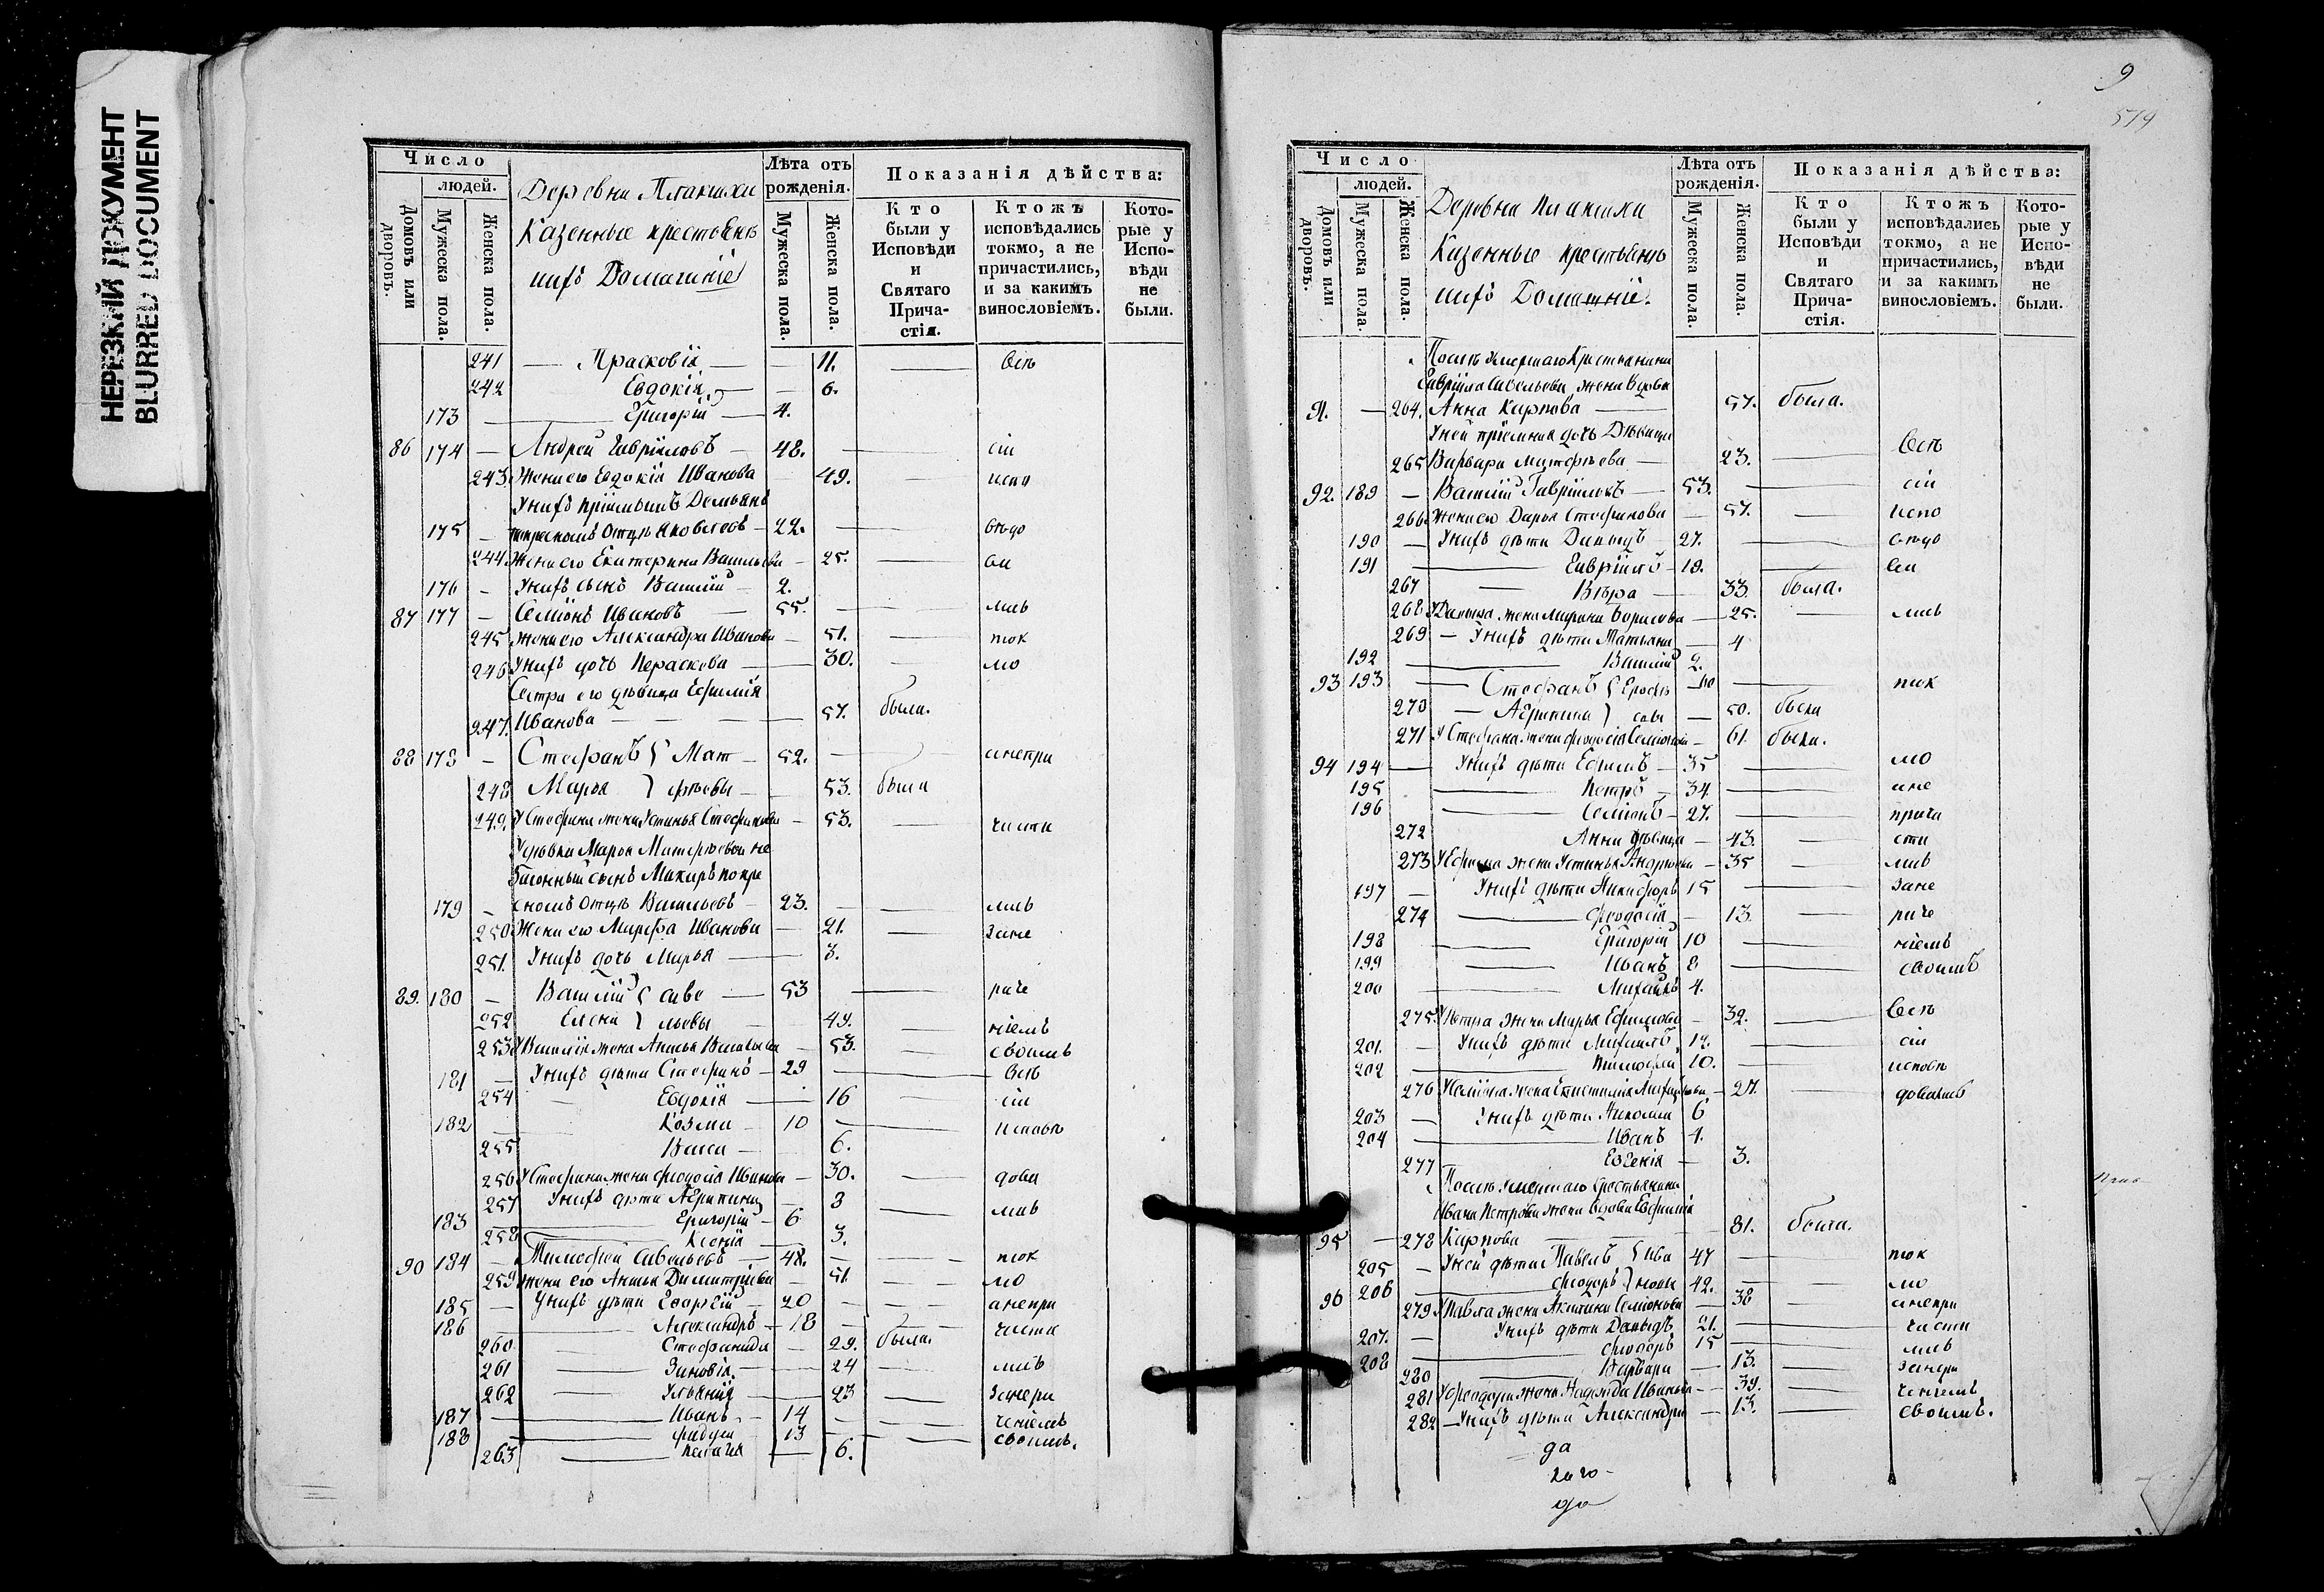 НЕРЕЗКИЙ ДОКУМЕНТ
BLURRED DOCUMENT
Число
людей.
Домовъ или дворовъ.
Мужеска пола.
Женска пола.
Деревни
Казенные крестьяне
нихъ Домашніе
Лѣта отъ рожденія.
Мужеска пола.
Женска пола.
Показанія дѣйства:
Кто были у Исповѣди и Святаго Причастія.
Ктожъ исповѣдались токмо, а не причастились, и за какимъ винословіемъ.
Которые у Исповѣди не были.
241 Прасковія 11. всѣ
242 Евдокія 6.
173 Григорій 4.
86 174 Андрей Гавріиловъ 48. сіи
243. Жена его Евдокія Иванова 49. испо
У нихъ пріемышъ Демьянъ
175 Отцѣ Яковлевъ 22. вѣдо
244. Жена его Екатерина Васильева 25. ва
176 У нихъ сынъ Василій 2.
87 177 Семіонъ Ивановъ 55. лись
245 жена его Александра Иванова 51. ток
246 У нихъ дочь Параскева 30. мо
Сестра его дѣвица Ефимія
247. Иванова 57. была.
88 178 Стефанъ Мат 52. а непри
248 Марья фѣевы 53. была
249. У Стефана жена Устинья Стефанова 53. части
У дѣвки Марьи Матфѣевой не
законный сынъ Макаръ по кре
стномъ Отцѣ Васильевъ
179 23. лись
250 Жена его Марфа Иванова 21. зане
251. У нихъ дочь Марья 3.
89. 180 Василій саве 53 раче
252 Елена льевы 49. ніемъ
253 У Василія жена Анисья Васильева 53. своимъ
181 У нихъ дѣти Стефанъ 29 всѣ
254 Евдокія 16 сіи
182 Козма 10 исповѣ
255 Васса 6.
256 У Стефана жена Феодосія Иванова 30. дова
257 У нихъ дѣти Агрипина 8 лись
183 Григорій 6
258 Ксенія 3.
90 184 Тимофей Савельевъ 48. ток
259 жена его Анисья Димитріева 51. мо
185 У нихъ дѣти Георгій 20 а непри
186 Александръ 18 части
260 Стефанида 29. была.
261 Зиновія 24 лись
262 Ульянія 23 занера
187 Иванъ 14 ченіемъ
188 13 своимъ.
263 Пелагія 6.
9
519
Число
людей.
Домовъ или дворовъ.
Мужеска пола.
Женска пола.
Деревни
Казенные крестьяне
нихъ Домашніе.
Лѣта отъ рожденія.
Мужеска пола.
Женска пола.
Показанія дѣйства:
Кто были у Исповѣди и Святаго Причастія.
Ктожъ исповѣдались токмо, а не причастились, и за какимъ винословіемъ.
Которые у Исповѣди не были.
Послѣ умершаго Крестьянина
Гавріила Савельева жена вдова
91. 264. Анна Карпова 57. была.
У ней пріемная дочь Дѣвица
265 Варвара Матфѣева 23. всѣ
92. 189 Василій Гавріиловъ 53. сіи
266. Жена его Дарья Стефанова 57. испо
190 У нихъ дѣти Давыдъ 27. вѣдо
191 Гавріилъ 18. ва
267 Вѣра 33. была.
268 У Давыда жена Марина Борисова 25. лись
269 У нихъ дѣти Татьяна 4
192 Василій 2.
93 193 Стефанъ Ерофѣ 60 ток
270 Агрипина евы 50. была
271 У Стефана жена Феодосія Семіонова 61. была.
94 194 У нихъ дѣти Ефимъ 35 мо
195 Петръ 34. а не
196 Семіонъ 27. прича
272 Анна дѣвица 43. сти
273 У Ефима жена Устинья Андреева 35 лись
197 У нихъ дѣти Никифоръ 15 зане
274 Феодосія 13. раче
198 Григорій 10 ніемъ
199 Иванъ 8 своимъ
200 Михаилъ 4.
275. У Петра жена Марья Ефимова 32. всѣ
201. У нихъ дѣти Михаилъ 12. сіи
202 Тимофей 10. исповѣ
276 У Семіона жена 27. довались
203 У нихъ дѣти Николай 6
204 Иванъ 4.
277 Евгенія 3.
Послѣ умершаго Крестьянина
Ивана Петрова жена вдова Евфимія
95 278 Карпова 81. была.
205 У ней дѣти Павелъ Ива 47 ток
96 206 Феодоръ новы 42. мо
279 У Павла жена Акилина Семіонова 38 а непри
207. У нихъ дѣти Давыдъ 21. части
208 Феодоръ 15 лись
280 Варвара 13. занера
281 У Феодора жена Надежда Иванова 39. ченіемъ
282 У нихъ дѣти Александра 13. своимъ.